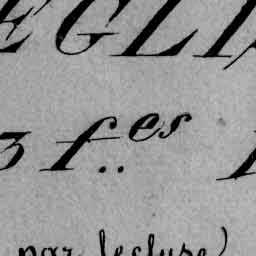 EGLI
3 f..es
par lecluse)